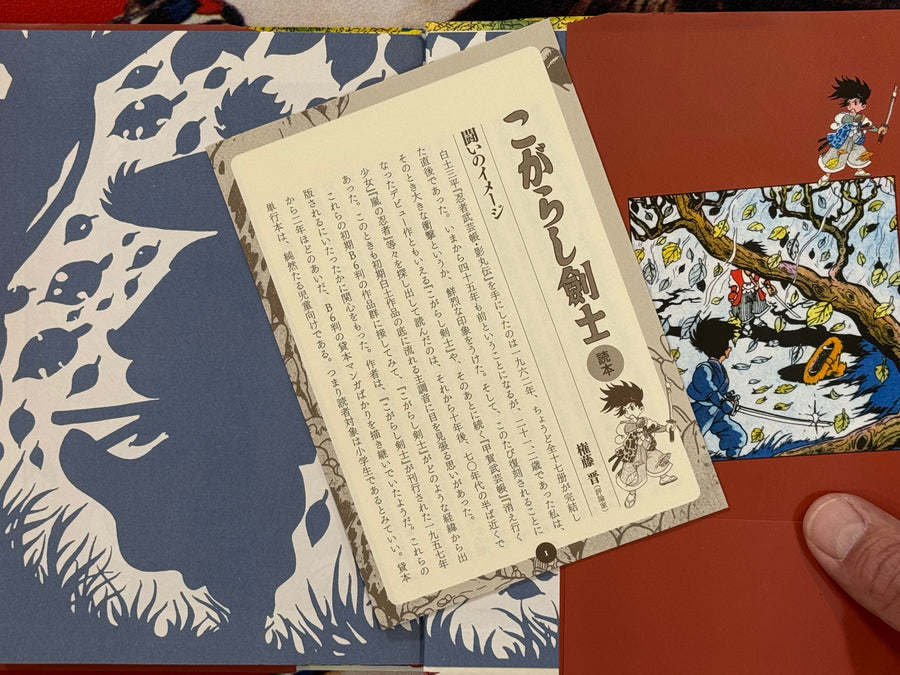 こがらし剣士 読本
権藤 晋(評論家)
闘いのイメージ
白土三平『忍者武芸帳・影丸伝』を手にしたのは一九六二年、ちょうど全十七冊が完結し
た直後であった。いまから四十五年半前ということになるが、二十一、二歳であった私は、
そのとき大きな衝撃というか、鮮烈な印象をうけた。そして、このたび復刻されることに
なったデビュー作ともいえる『こがらし剣士』や、そのあとに続く『甲賀武芸帳』『消え行く
少女』『嵐の忍者』等々を探し出して読んだのは、それから十年後、七〇年代の半ば近くで
あった。このときも初期白土作品の底に流れる主調音に目を見張る思いがあった。
これらの初期B6判の作品群に接してみて、『こがらし剣士』がどのような経緯から出
版されるにいたったかに関心をもった。作者は、『こがらし剣士』が刊行された一九五七年
から二年ほどのあいだ、B6判の貸本マンガばかりを描き継いでいたようだ。これらの
単行本は、純然たる児童向けである。つまり読者対象は小学生であるとみていい。貸本
1